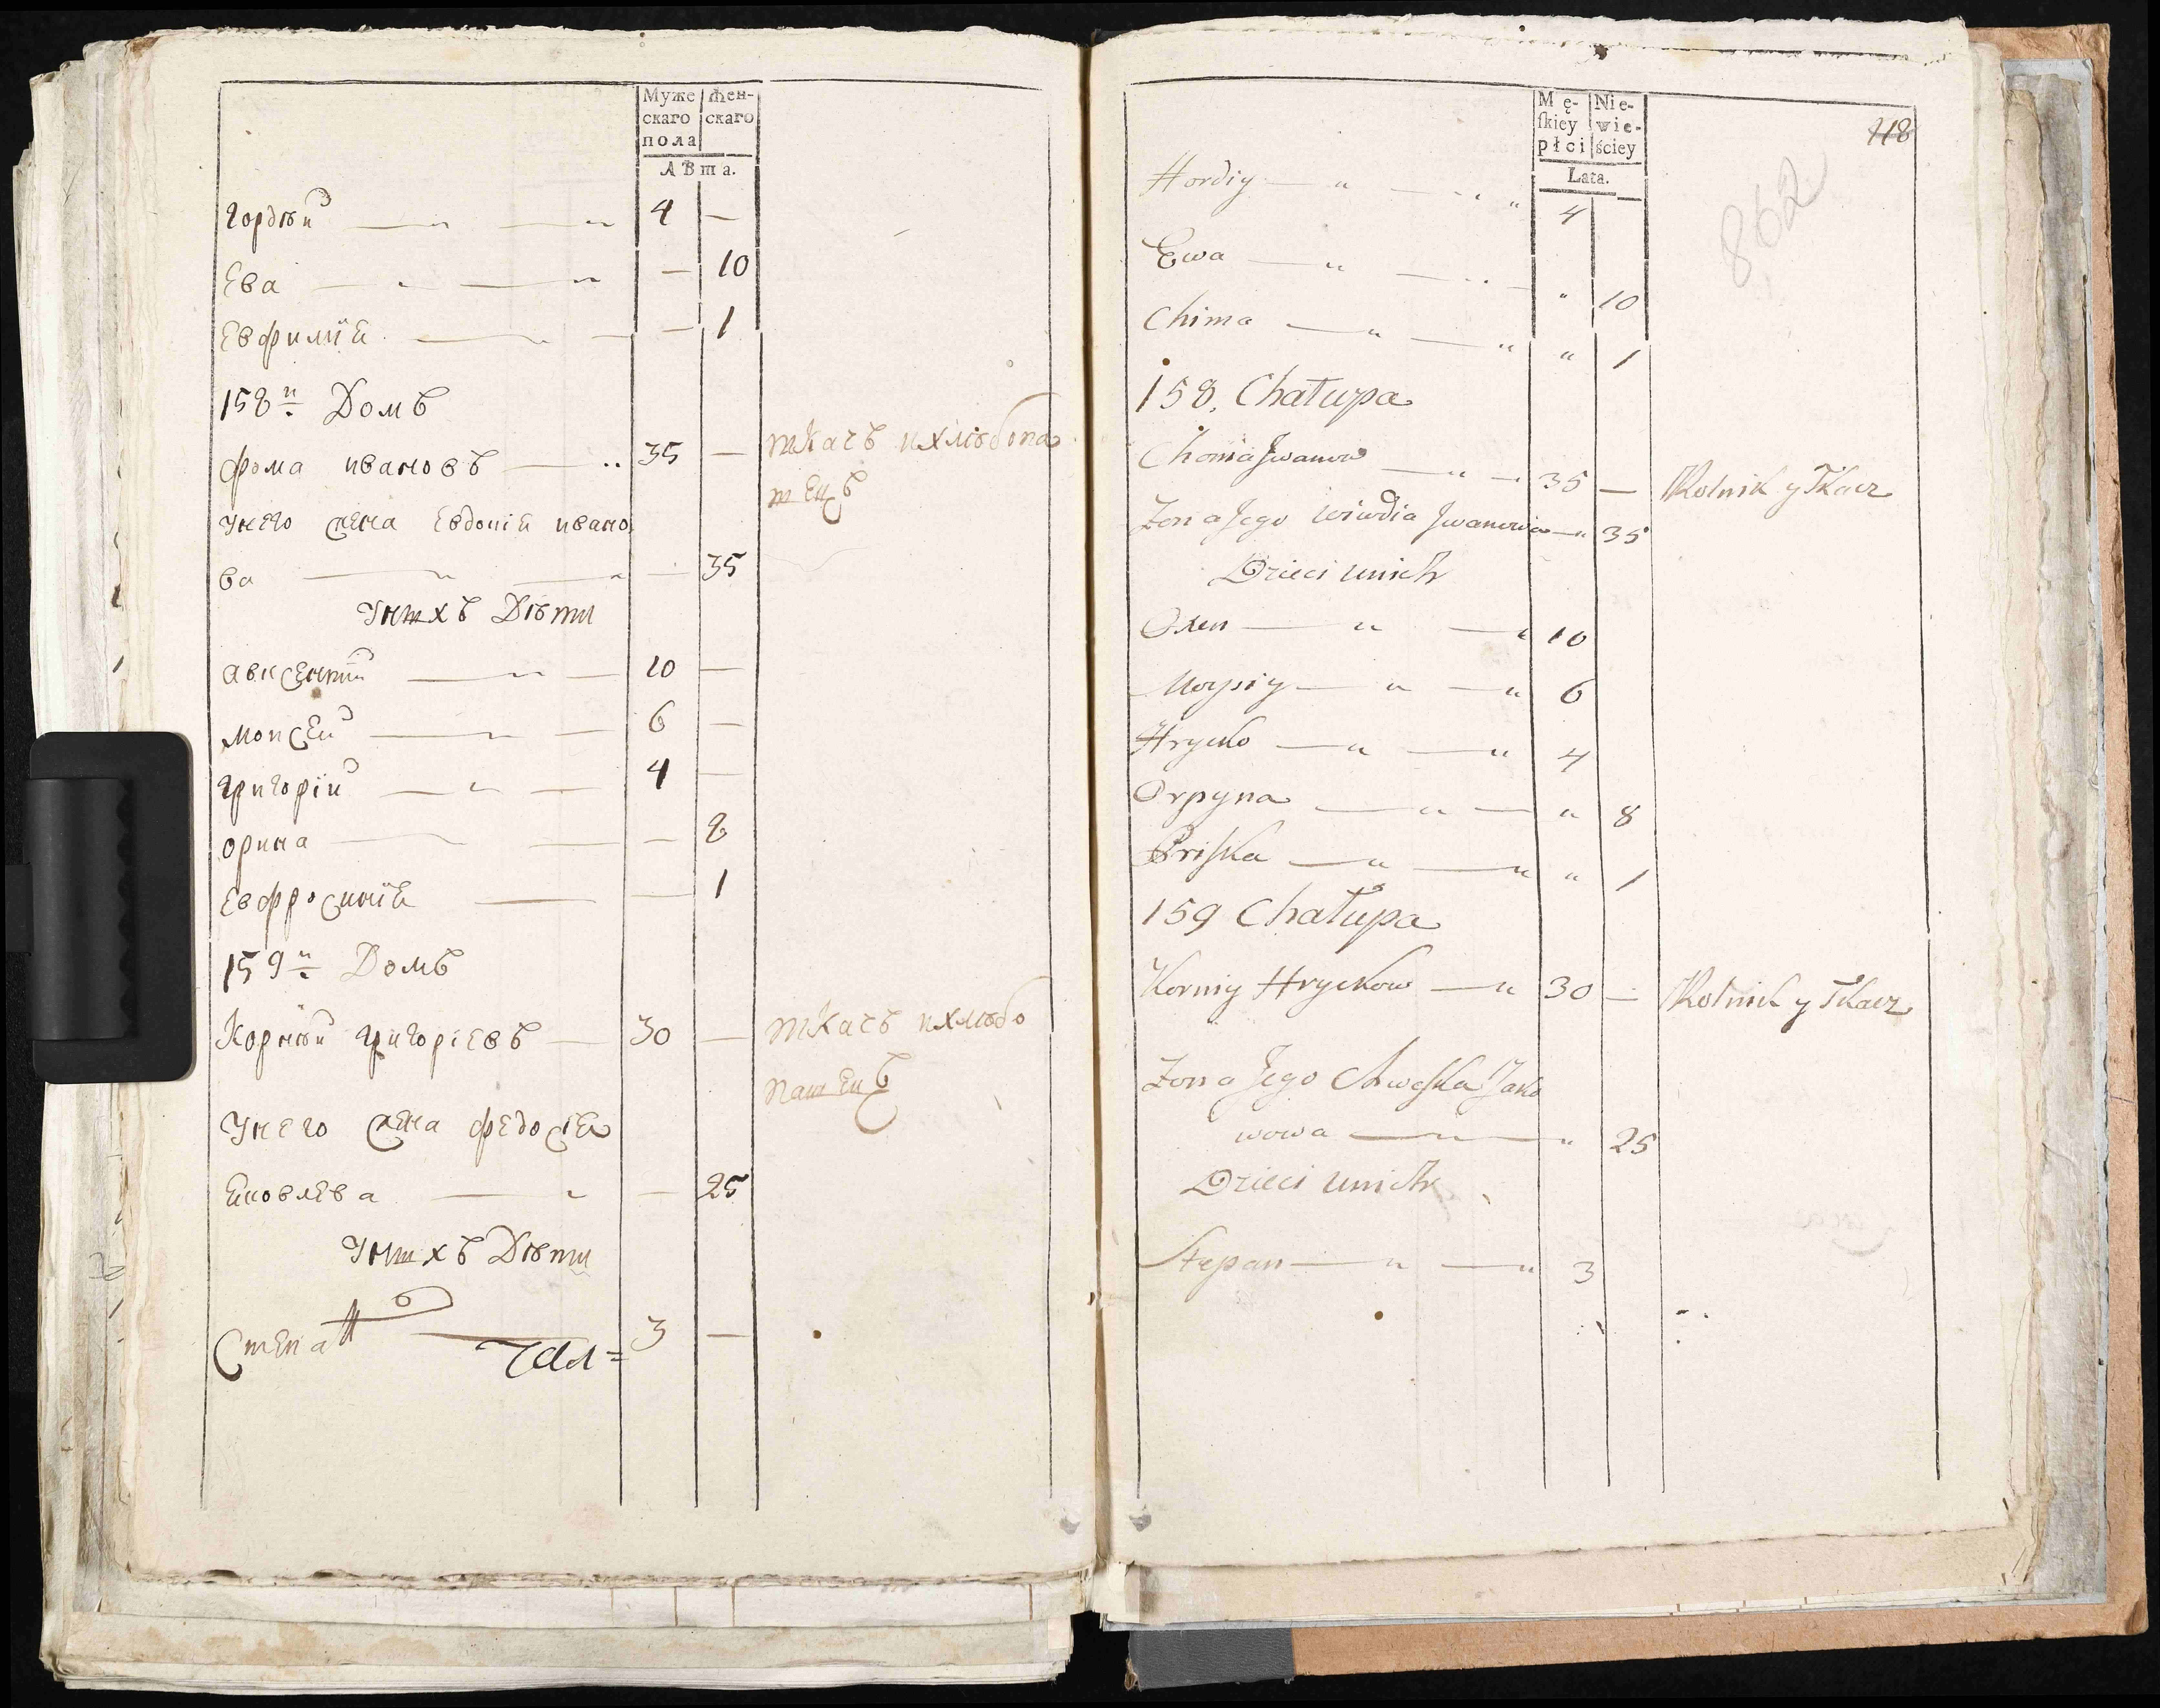 Муже
скаго
пола
Жен-
скаго
Лѣта.
Гордѣй — „ — „ 4 —
Ева — „ — „ — 10
Евфимїя — „ — — 1
158й Домъ
Фома Ивановъ — „ 35 — ткачъ и хлѣбопа
тецъ
У него жена Евдокія Ивано
ва — „ — „ — 35
У нихъ Дѣти
Авксентій — „ — 10 —
Моисей — „ — 6 —
Григорїй — „ — 4 —
Орина — — — 8
Евфросинїя — — 1
159й Домъ
Корнѣй Григоріевъ — 30 — ткачъ и хлѣбо
патецъ
У него жена Федосія
Яковлева — „ — 25
У нихъ Дѣти
Степанъ — 3 —
Mę-
ſkiey
płci
Nie-
wie-
ściey
Lata.
118
862
Hordiy — „ — „ „ 4
Ewa — „ — „ — „ 10
Chima — „ — „ „ 1
158. Chałupa
Choma Jwanow — „ — 35 — Rolnik y Tkacz
Zona Jego Wiwdia Jwanowa — „ 35
Dzieci u nich
Oxen — „ — „ 10
Moysiy — „ — „ 6
Hrycko — „ — „ 4
Orpyna — „ — „ 8
Priſka — „ — „ „ 1
159 Chałupa
Korniy Hryckow — „ 30 — Rolnik y Tkacz
Zona Jego Chweſka Jako
wowa — „ 25
Dzieci u nich
Stepan — „ — „ 3